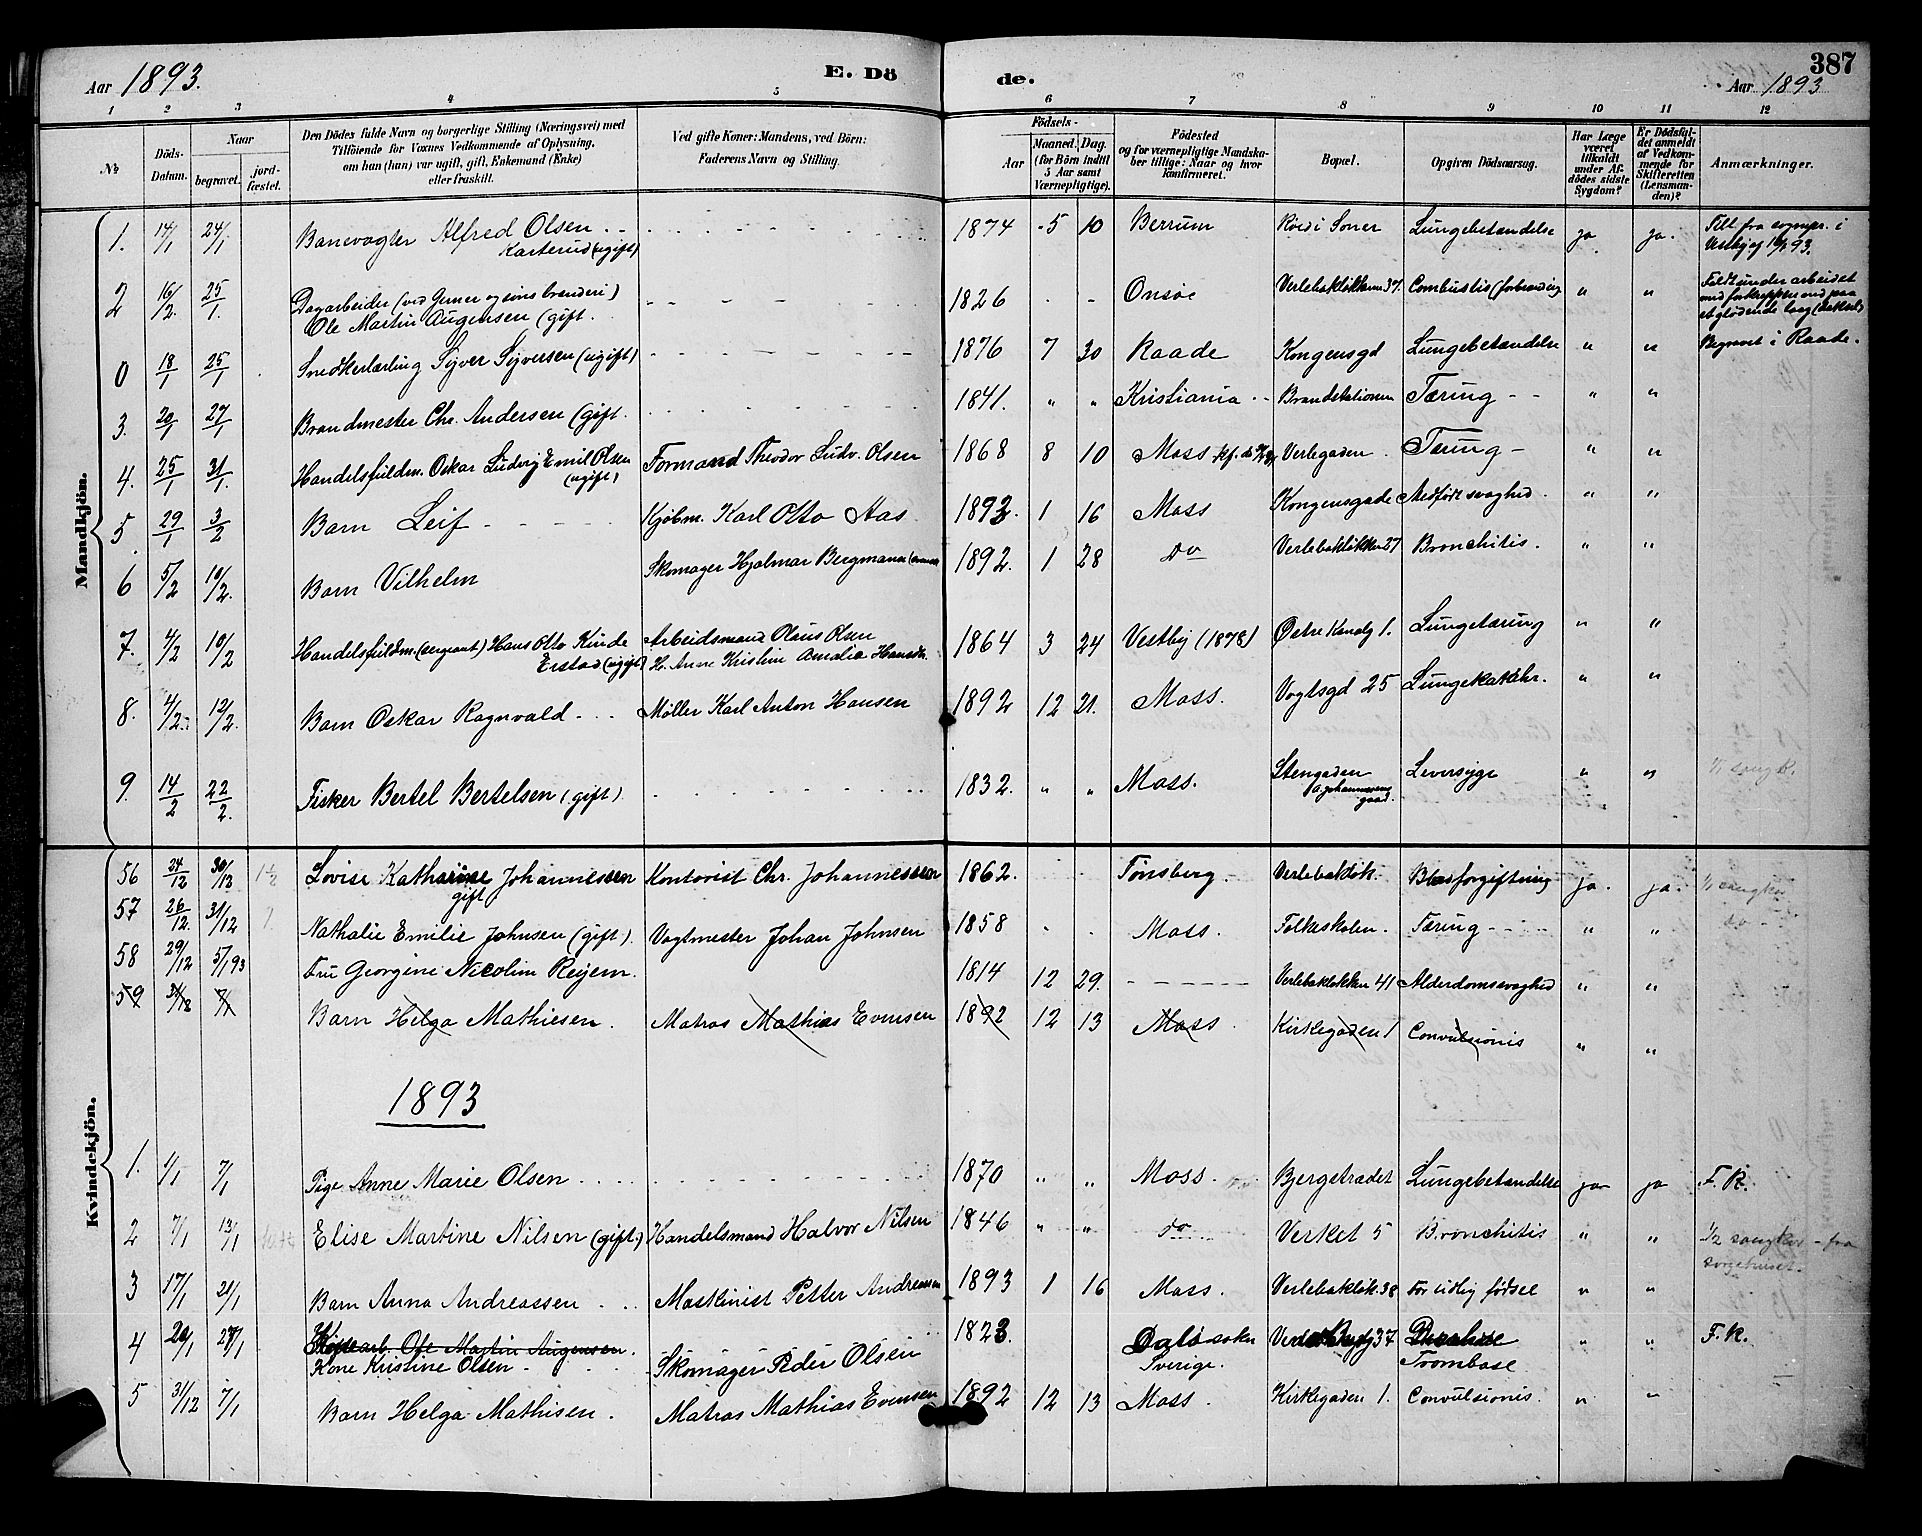 Aar 1893. E. Dö de. Aar 1893 387
1 2 3 4 5 6 7 8 9 10 11 12
№ Döds-Datum. Naar begravet. jord-fæstet. Den Dödes fulde Navn og borgerlige Stilling (Næringsvei) med Tilföiende for Voxnes Vedkommende af Oplysning, om han (hun) var ugift, gift, Enkemand (Enke) eller fraskilt. Ved gifte Koner: Mandens, ved Börn: Faderens Navn og Stilling. Födsels- Aar Maaned. Dag. (for Börn indtil 5 Aar samt Værnepligtige). Födested og for værnepligtige Mandska-ber tillige: Naar og hvor konfirmeret. Bopæl. Opgiven Dödsaarsag. Har Læge været tilkaldt under Af-dödes sidste Sygdom? Er Dödsfal-det anmeldt af Vedkom-mende for Skifteretten (Lensman-den)? Anmærkninger.
Mandkjön.
1. 14/1 24/1 Banevagter Alfred Olsen Karterud (ugift) 1874 5 10 Berrum Roed i Soner Lungebetændelse ja ja. Filt fra sognepr. i
2 16/2 25/1 Dagarbeider (ved Gerner og søns brænderi) Ole Martin Augensen (gift. 1826 Onsøe Verlebakløkken 37. Combustis (forbrænding " " Faldt under arbeidet
0 18/1 25/1 Snedkerlærling Syver Syversen (ugift) 1876 7 30 Raade Kongensgd Lungebetændelse " " Begravet i Raade.
3. 20/1 27/1 Brandmester Chr. Andersen (gift. 1841. " " Kristiania Brandstationen Tæring " "
4. 25/1 31/1. Handelsfuldm. Oskar Ludvig Emil Olsen (ugift) Formand Theodor Ludv. Olsen 1868 8 10 Moss Verlegaden. Tæring " "
5 29/1 3/2 Barn Leif Kjøbm. Karl Otto Aas 1892. 1 16 Moss Kongensgade Medfødt svaghed. " "
6 5/2 10/2. Barn Vilhelm Skomager Hjalmar Bergmann 1892. 1 28 do Verlebakløkken 27 Bronchitis. " "
7. 4/2 10/2 Handelsfuldm. (sergeant) Hans Otto Kinde Erstad (ugift) Arbeidsmand Olaus Olsen H. Anne Kristine Amalie 1864 3 24 Vestby (1878) Østre Kanalg 1. Lungetæring " "
8. 4/2 12/2. Barn Oskar Ragnvald Møller Karl Anton Hansen 1892 12 21. Moss. Vogtsgd 25 Lungekatahr. " "
9. 14/2 22/2. Fisker Bertel Bertelsen (gift) 1832. " " Moss. Stengaden Leversyge " " 1/1 sangk.
Kvindekjön.
56 24/12 30/12 1/2 Lovise Katharine Johannessen gift Kontorist Chr. Johannessen 1862. Tönsberg. Verlebakløk. Blodforgiftning ja. ja. 1/1 sangkor
57 26/12. 31/12 Nathalie Emilie Johnsen (gift). Vogtmester Johan Johnsen 1858 Moss. Folkeskolen. Tæring " " do
58 29/12 5/1 93 Fru Georgine Nicoline Reyem. 1814 12 29. Verlebakløkken 41 Alderdomssvaghed " "
59 31/12 7/1 Barn Helga Mathiesen. Matros Mathias Evensen 1892 12 13 Moss. Kirkegaden 1 Convulsionis " "
1893
1. 4/1 7/1 Pige Anne Marie Olsen 1870 " " Moss. Bjergstrædet Lungebetændelse ja ja F.R.
2 7/1 13/1 Elise Martine Nilsen (gift.) Handelsmand Halvor Nilsen 1846 " " do Verket 5 Bronchitis " " 1/2 sangkor - fra sørgehuset.
3 17/1 21/1 Barn Anna Andreassen Maskinist Petter Andreassen 1893 1 16 Moss. Verlebakløk. 38 For tidlig fødsel " "
4 20/1 27/1 Ole Martin Augensen. Kone Kristine Olsen Skomager Peder Olsen 1823. Dals sokn Sverige. 37 Trombose " " F.R.
5 31/12 7/1 Barn Helga Mathisen. Matros Mathias Evensen 1892 12 13 Moss. Kirkegaden 1. Convulsionis. " "